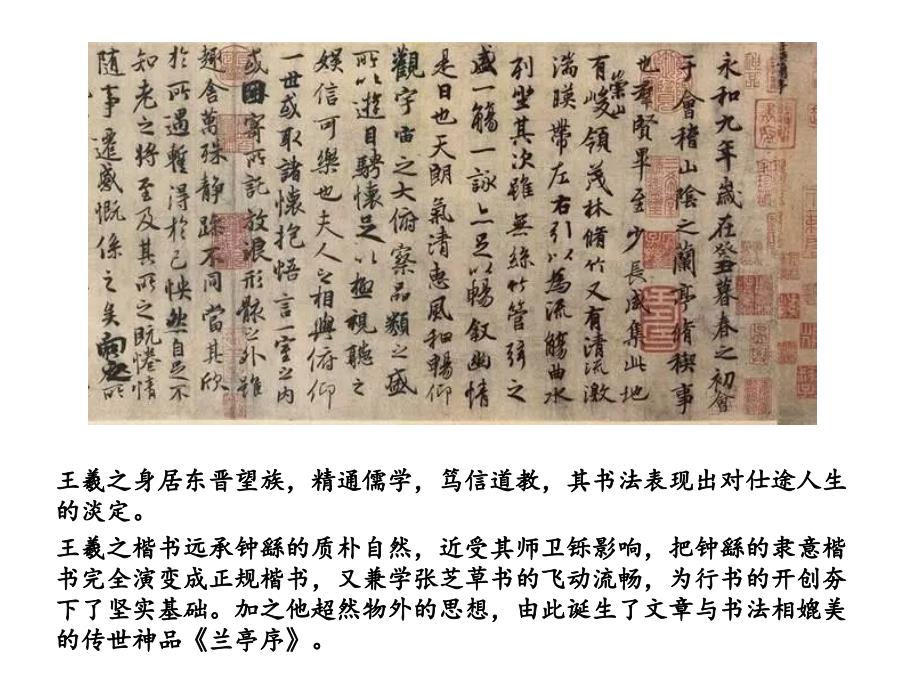 永和九年歲在癸丑暮春之初會
于會稽山陰之蘭亭脩稧事
也羣賢畢至少長咸集此地
有崇山峻領茂林脩竹又有清流激
湍暎帶左右引以為流觴曲水
列坐其次雖無絲竹管弦之
盛一觴一詠亦足以暢敘幽情
是日也天朗氣清惠風和暢仰
觀宇宙之大俯察品類之盛
所以遊目騁懷足以極視聽之
娛信可樂也夫人之相與俯仰
一世或取諸懷抱悟言一室之內
或因寄所託放浪形骸之外雖
趣舍萬殊靜躁不同當其欣
於所遇暫得於己怏然自足不
知老之將至及其所之既惓情
隨事遷感慨係之矣向之所
王羲之身居东晋望族，精通儒学，笃信道教，其书法表现出对仕途人生
的淡定。
王羲之楷书远承钟繇的质朴自然，近受其师卫铄影响，把钟繇的隶意楷
书完全演变成正规楷书，又兼学张芝草书的飞动流畅，为行书的开创夯
下了坚实基础。加之他超然物外的思想，由此诞生了文章与书法相媲美
的传世神品《兰亭序》。